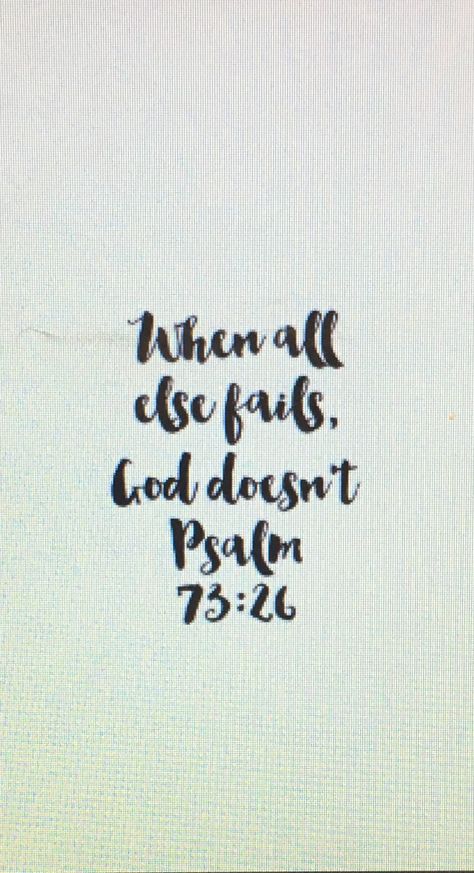 When all
else fails,
God doesn't
Psalm
73:26